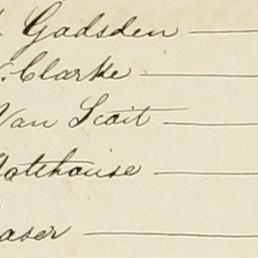 Gadsden
Clarke
Van Scoit
Gatehouse
aser